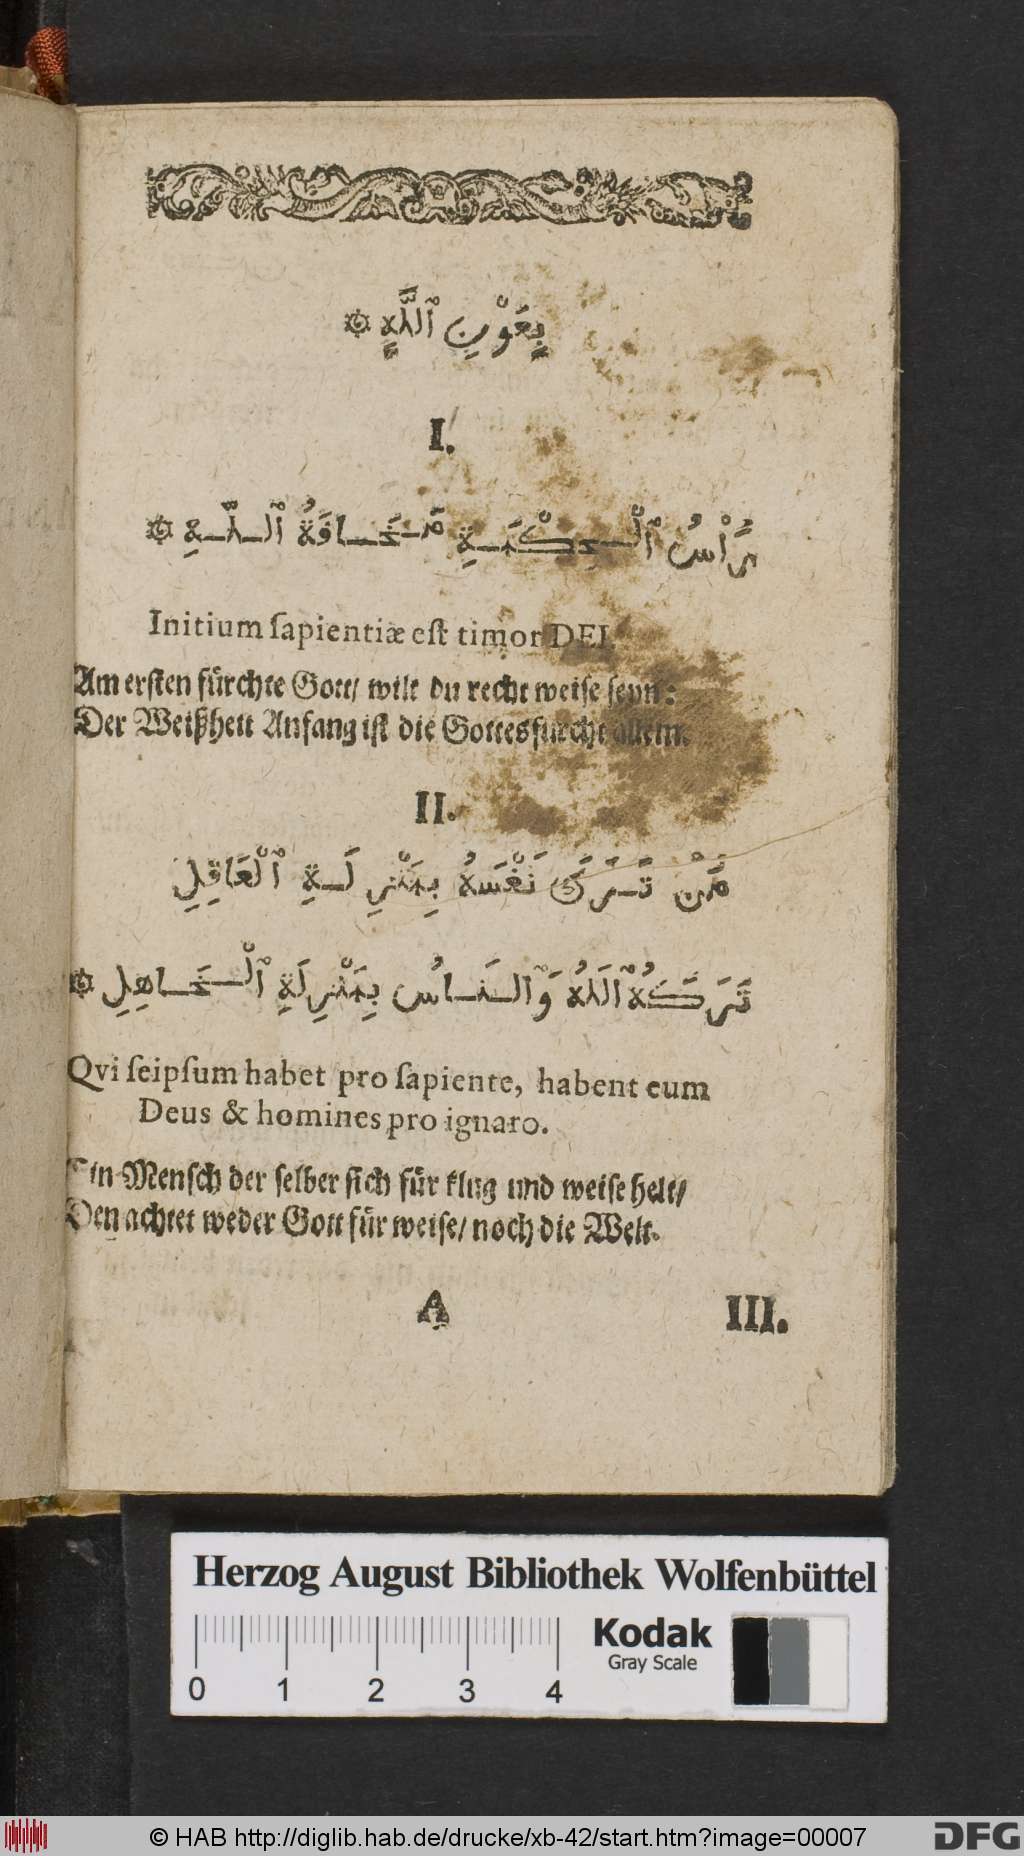 بِعَوْنِ ٱللَّهِ
I.
رَأْسُ ٱلْحِكْمَةِ مَخَافَةُ ٱللّٰهِ
Initium ſapientiæ eſt timor DEI.
Am erſten fürchte Gott/ wilt du recht weiſe ſeyn:
Der Weißheit Anfang iſt die Gottesfurcht allein.
II.
مَنْ تَرَكَ نَفْسَهُ بِمَنْزِلَةِ ٱلْعَاقِلِ
تَرَكَهُ ٱللَّهُ وَٱلنَاسُ بِمَنْزِلَةِ ٱلْجَاهِلِ
Qvi ſeipſum habet pro ſapiente, habent eum
Deus & homines pro ignaro.
Ein Menſch der ſelber ſich für klug und weiſe helt/
Den achtet weder Gott für weiſe/ noch die Welt.
A III.
Herzog August Bibliothek Wolfenbüttel
0 1 2 3 4
Kodak
Gray Scale
© HAB http://diglib.hab.de/drucke/xb-42/start.htm?image=00007
DFG